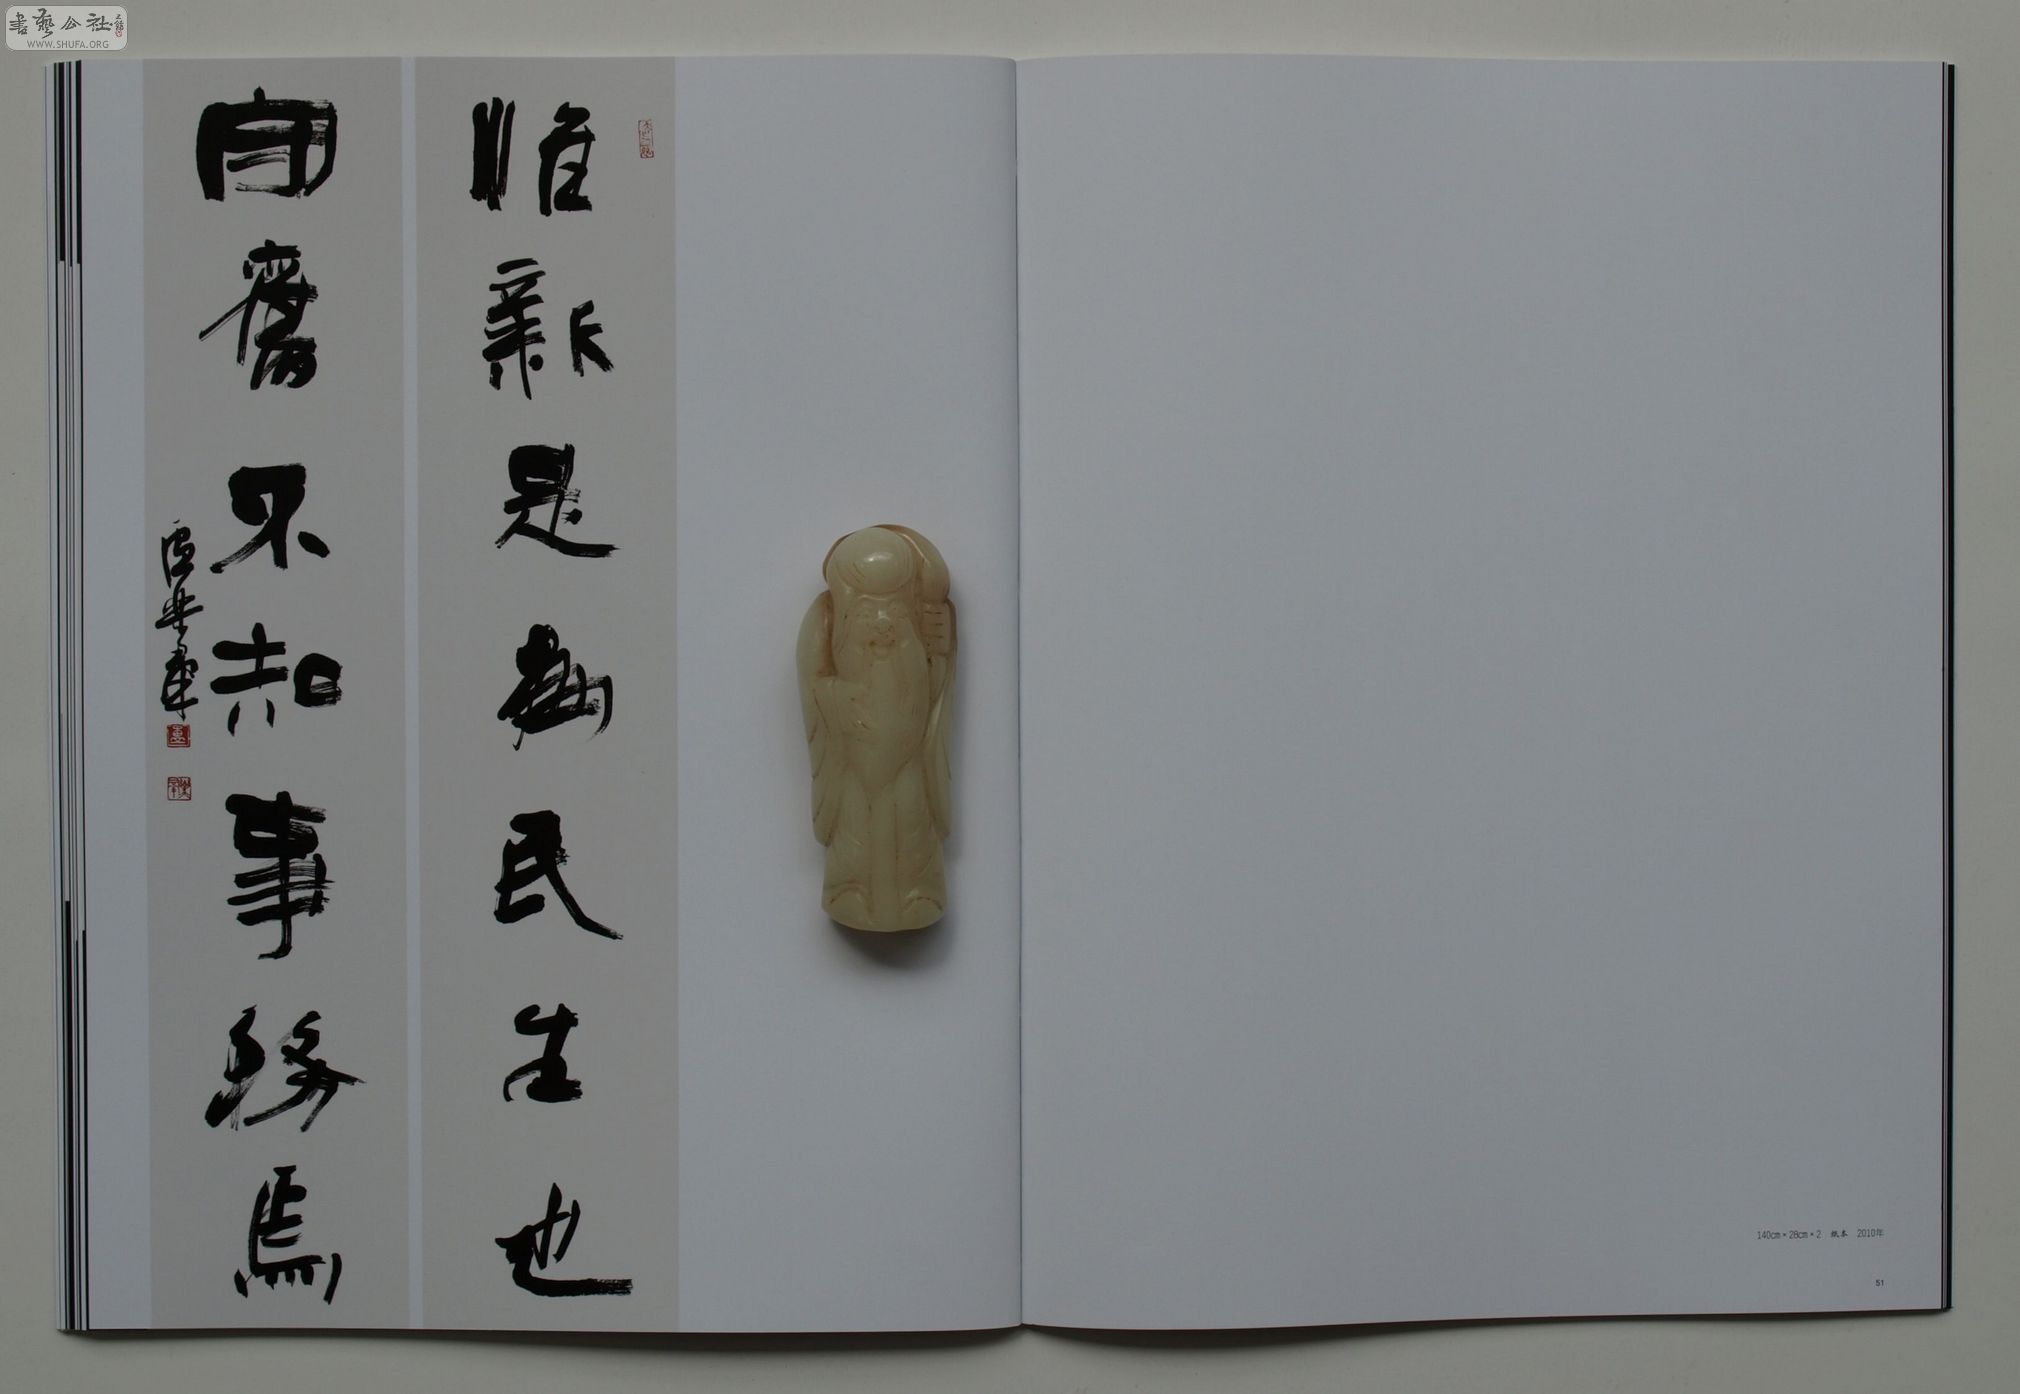 書藝公社
WWW.SHUFA.ORG
惟新是為民生也
守舊不知事務焉
140cm×28cm×2 纸本 2010年
51